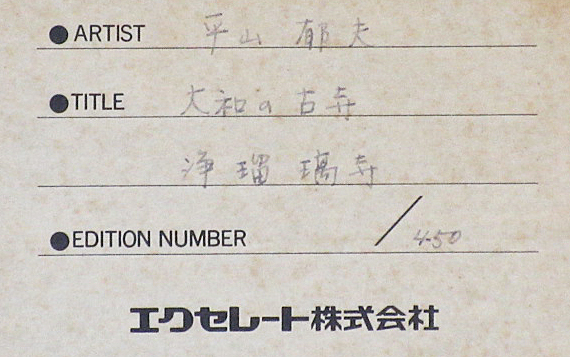 ●ARTIST 平山 郁夫
●TITLE 大和の古寺
浄瑠璃寺
●EDITION NUMBER / 450
エクセレート株式会社